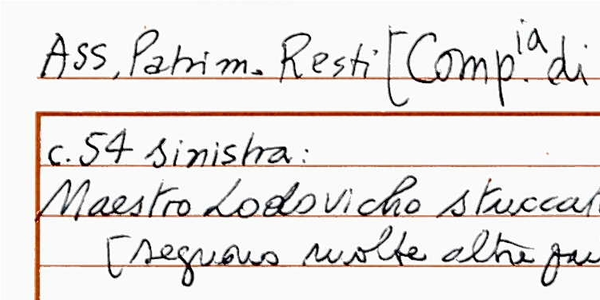 Ass. Patrim. Resti [Comp.ia di
c. 54 sinistra:
Maestro Lodovicho stuccat
[seguono molte altre